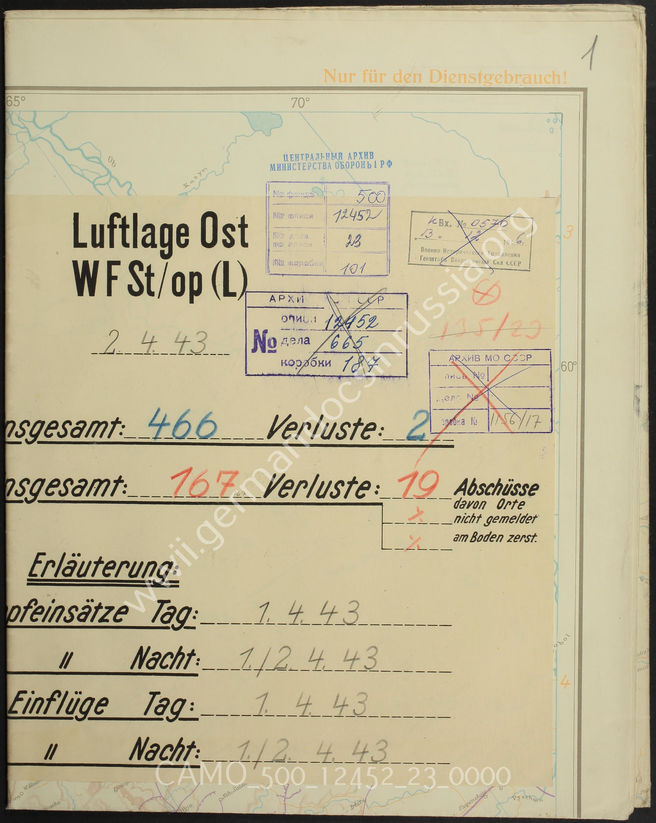 1
Nur für den Dienstgebrauch!
65°
70°
ЦЕНТРАЛЬНЫЙ АРХИВ
МИНИСТЕРСТВА ОБОРОНЫ РФ
№ фонда 500
№ описи 12452
№ дела 23
№ коробки 101
Luftlage Ost
WFSt/op (L)
2. 4. 43
Вх. № 0576
13. 12
Военно-Исторического Управления
Генштаба СССР
3
АРХИВ СССР
опись 12452
№ дела 665
коробки 187
135/23
АРХИВ МО СССР
№
№
№ 1156/17
60°
nsgesamt: 466 Verluste: 2
nsgesamt: 167 Verluste: 19 Abschüsse
davon Orte
nicht gemeldet
am Boden zerst.
Erläuterung:
pfeinsätze Tag: 1. 4. 43
" Nacht: 1./2. 4. 43
Einflüge Tag: 1. 4. 43
" Nacht: 1./2. 4. 43
4
www.ii.germandocsinrussia.org
CAMO_500_12452_23_0000